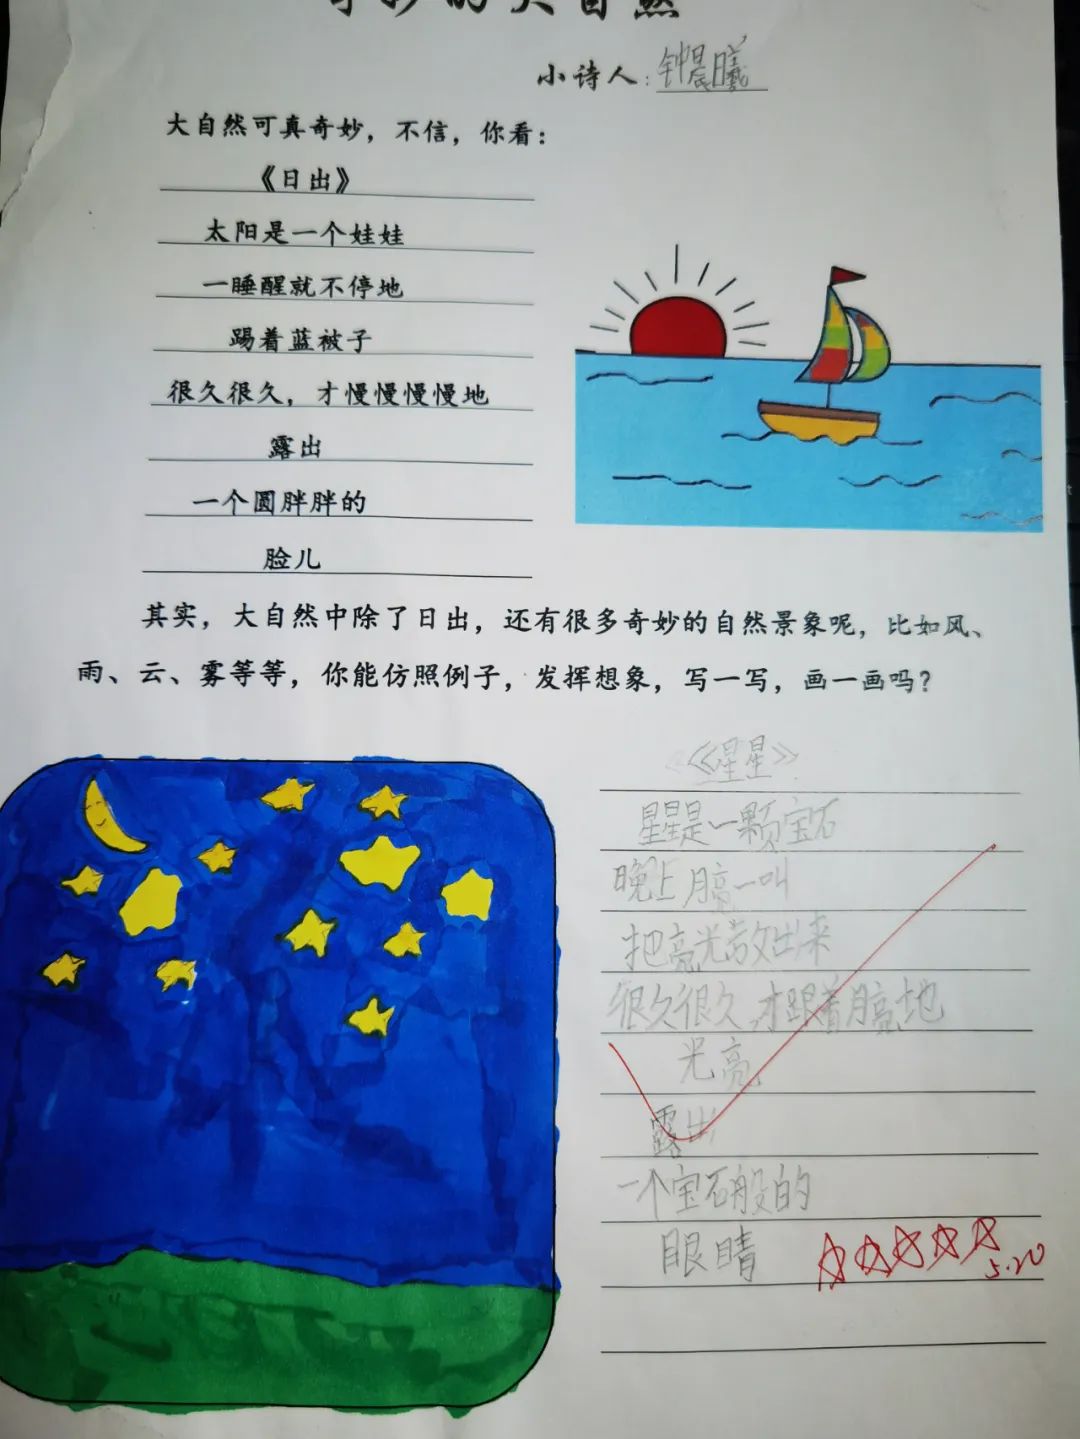 奇妙的大自然
小诗人：钟晨曦
大自然可真奇妙，不信，你看：
《日出》
太阳是一个娃娃
一睡醒就不停地
踢着蓝被子
很久很久，才慢慢慢慢地
露出
一个圆胖胖的
脸儿
其实，大自然中除了日出，还有很多奇妙的自然景象呢，比如风、
雨、云、雾等等，你能仿照例子，发挥想象，写一写，画一画吗？
《星星》
星星是一颗宝石
晚上月亮一叫
把亮光散出来
很久很久,才跟着月亮地
光亮
露出
一个宝石般的
眼睛
5.20